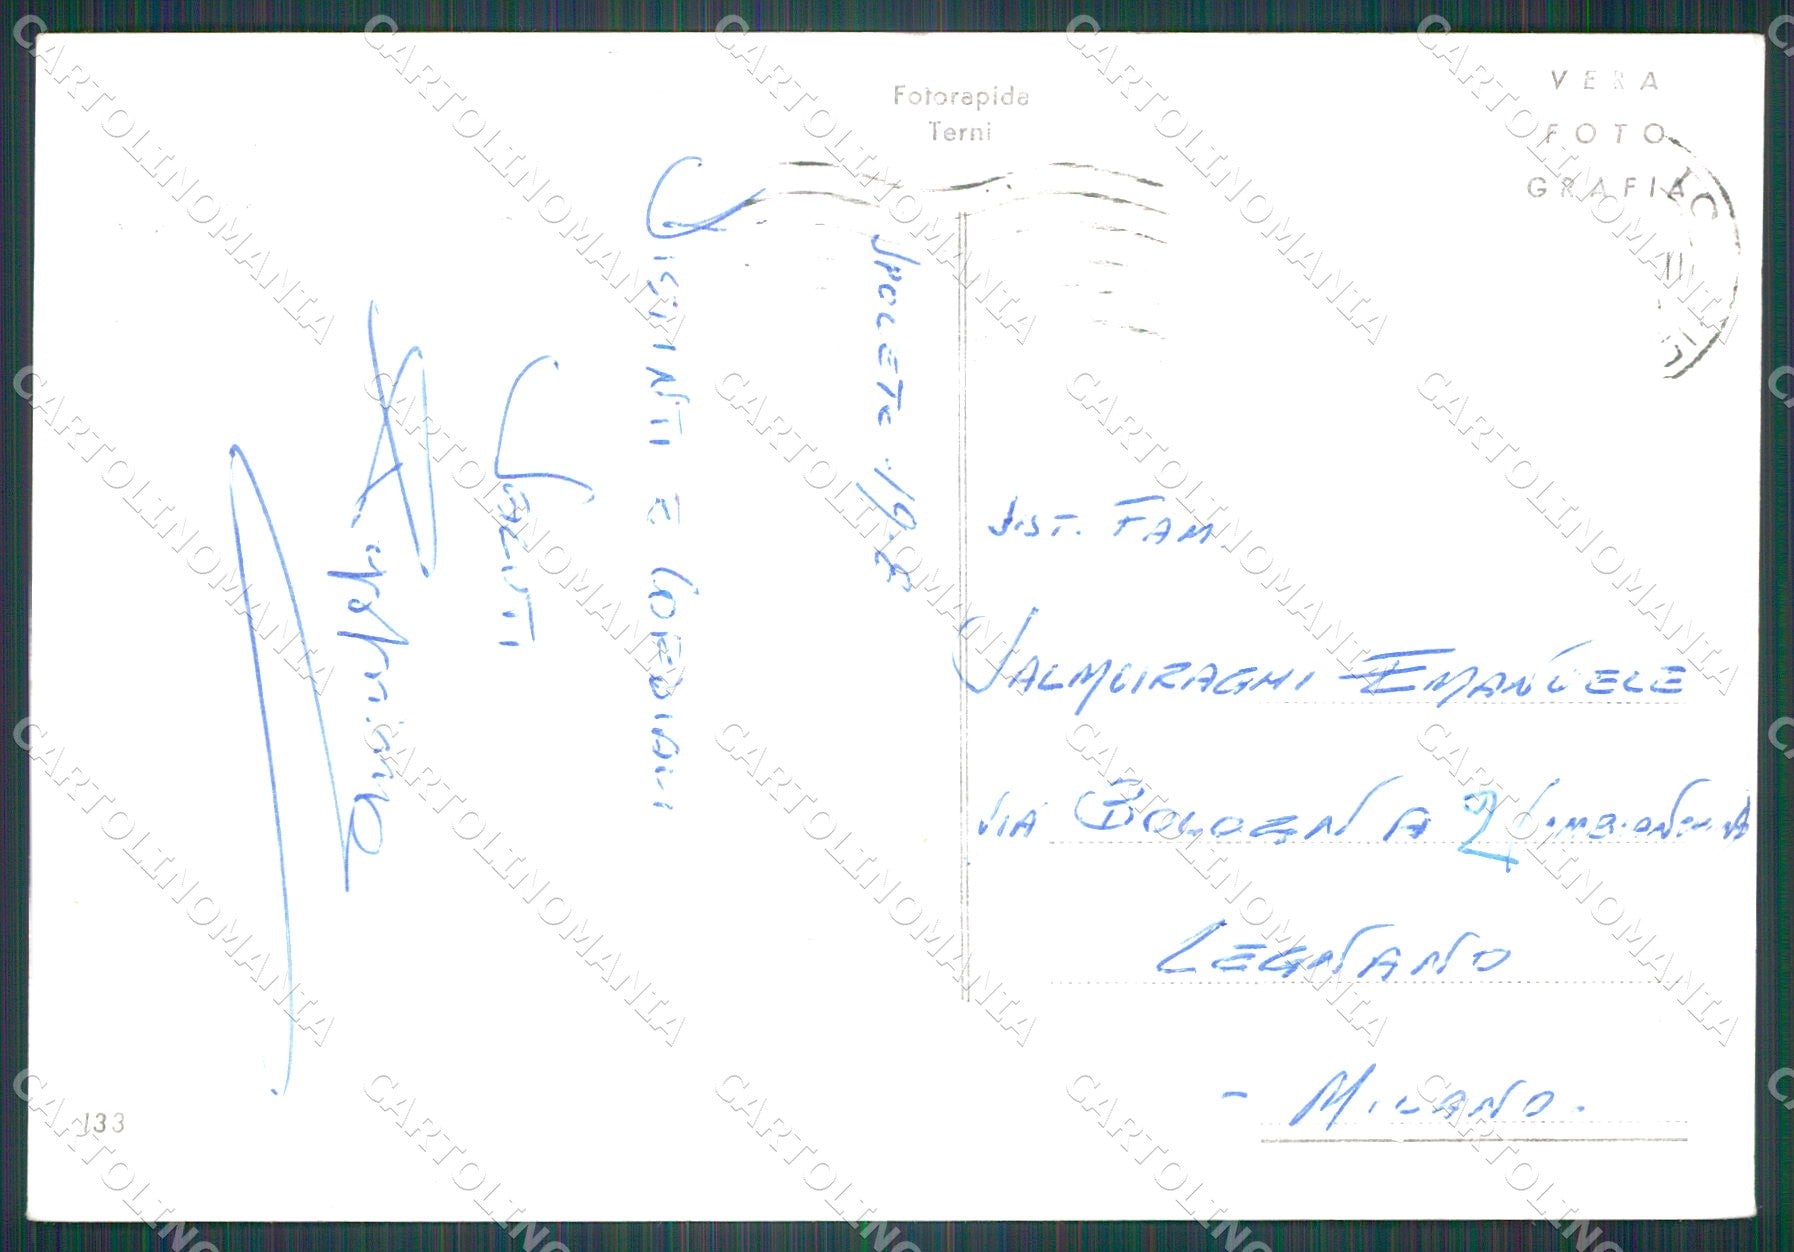 Fotorapida
Terni
VERA
FOTO
GRAFIA
SPOLETO
DISTINTI E CORDIALI
SALUTI
DIST. FAM.
SALMOIRAGHI EMANUELE
VIA BOLOGNA 2
LEGNANO
- MILANO.
133
CARTOLINOMANIA